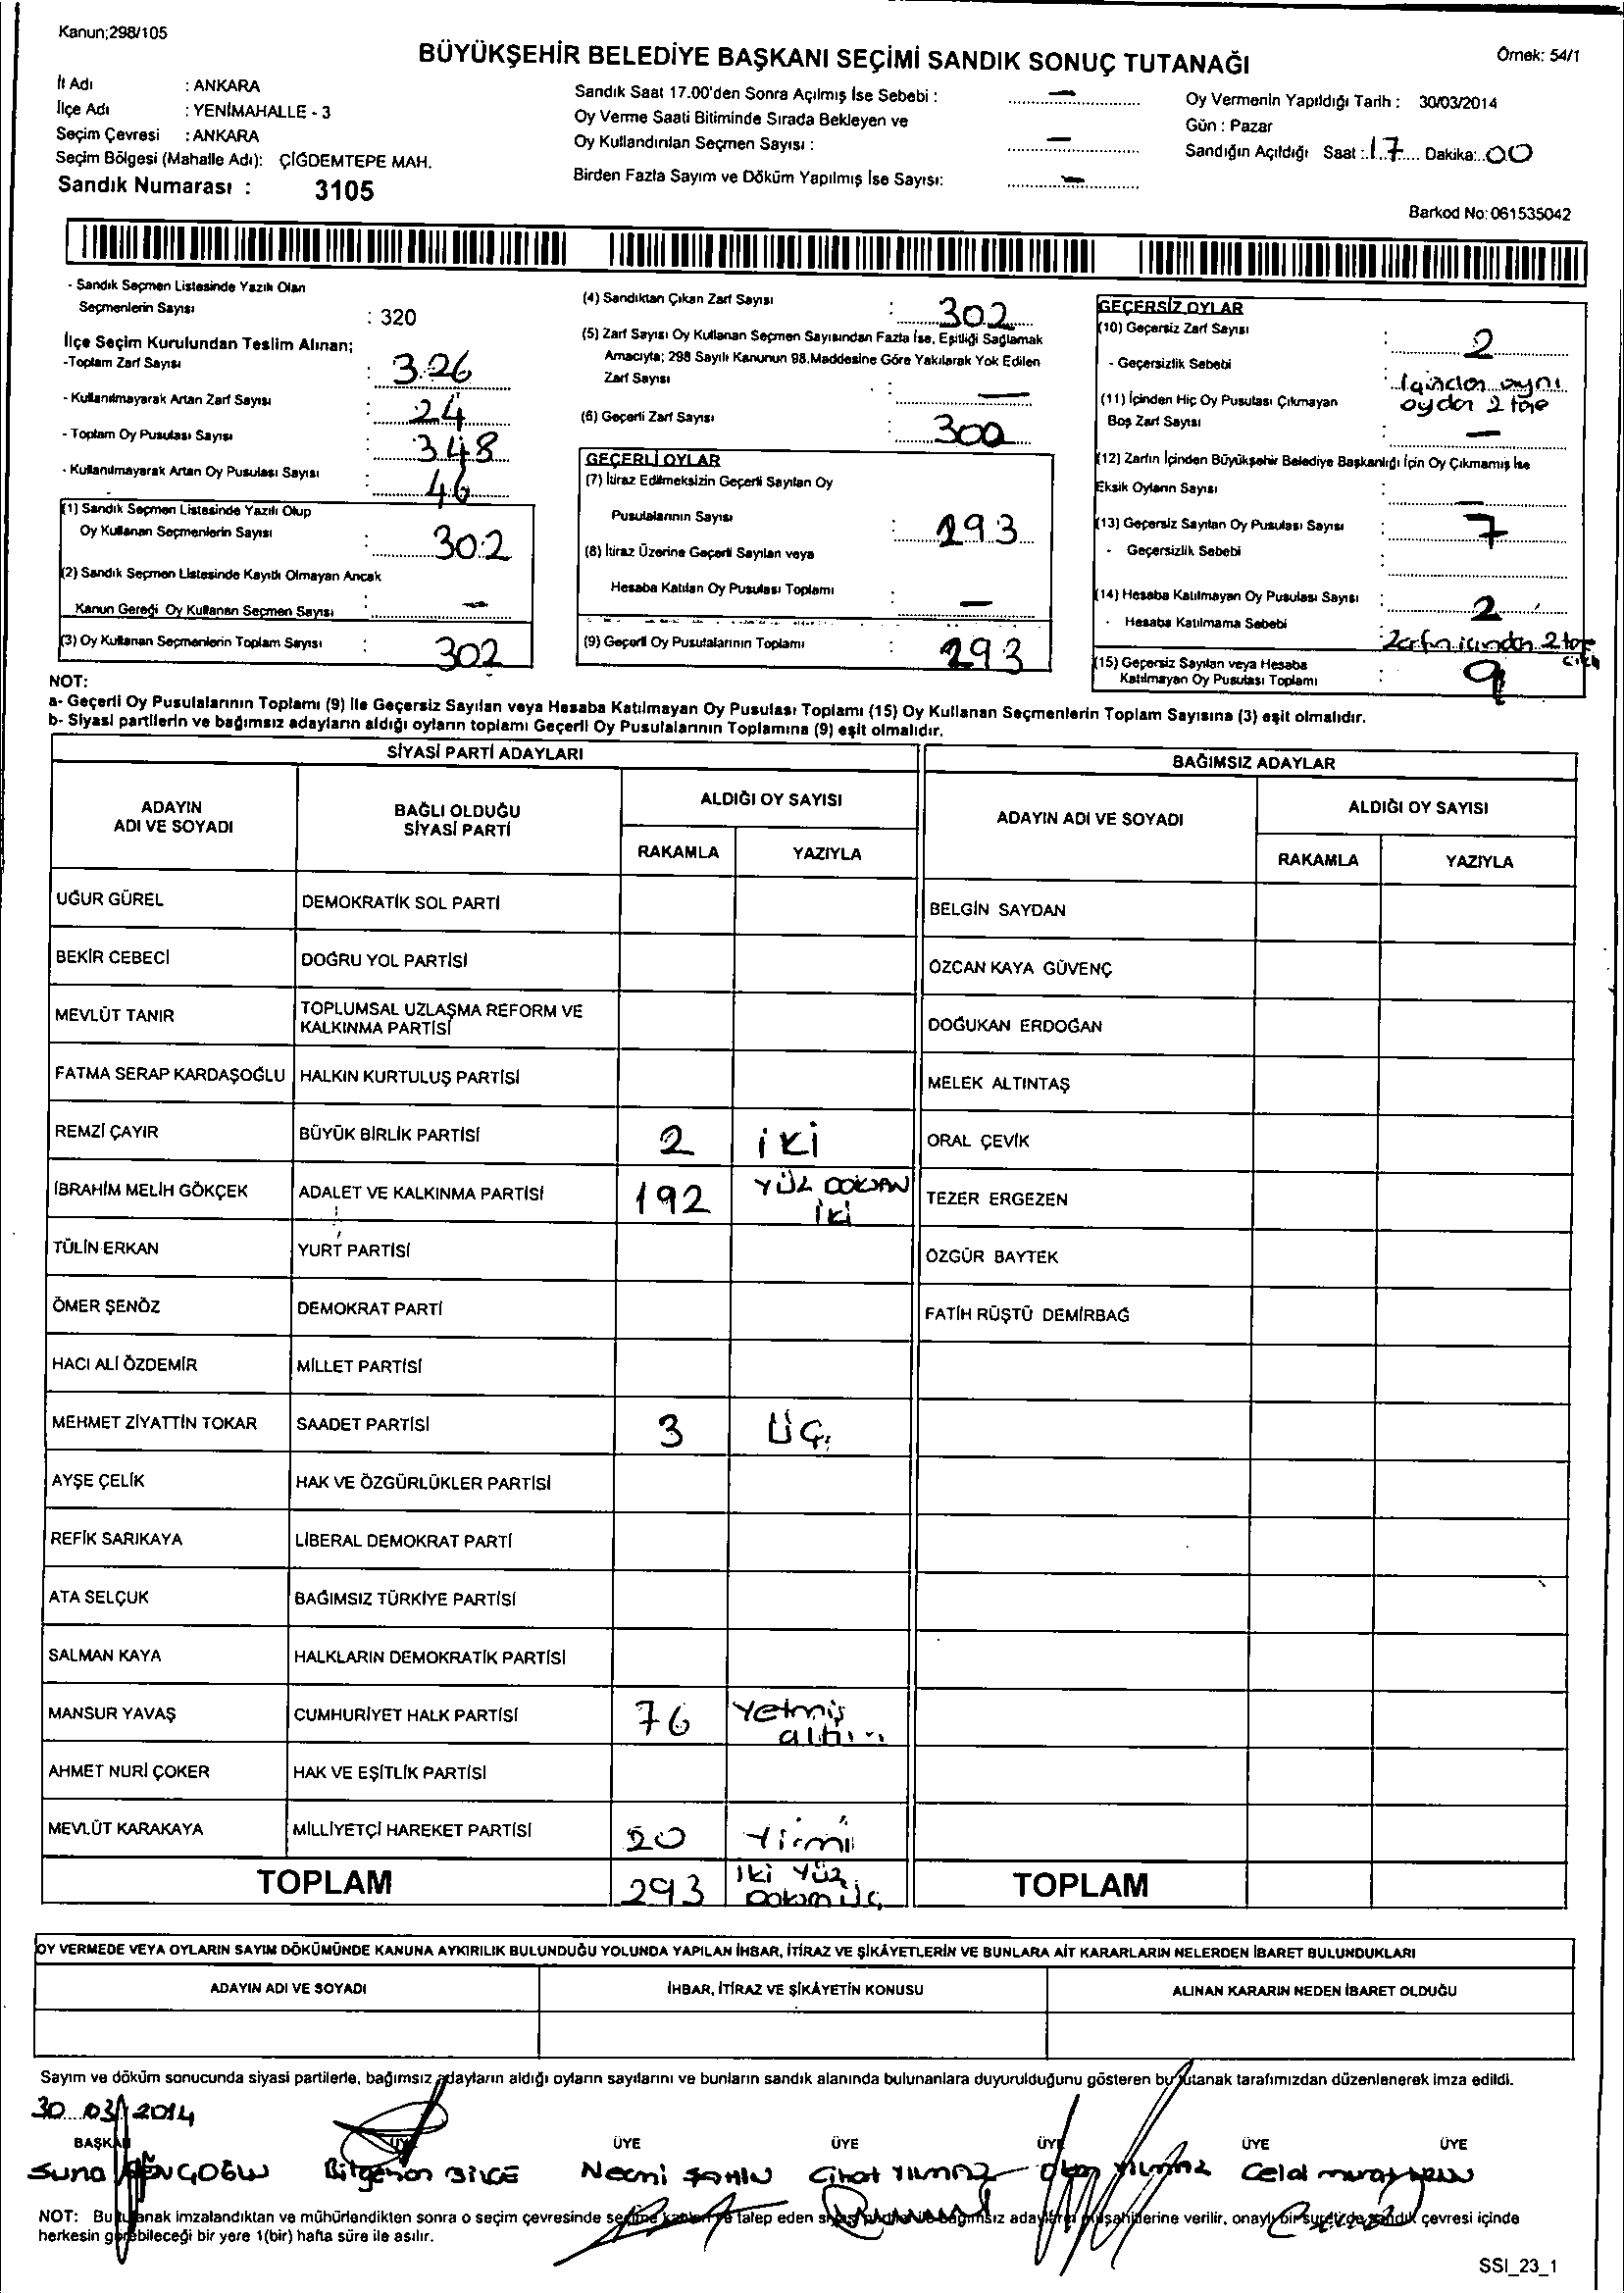 Kanun;298/105
BÜYÜKŞEHİR BELEDİYE BAŞKANI SEÇİMİ SANDIK SONUÇ TUTANAĞI
Örnek: 54/1
İl Adı : ANKARA
İlçe Adı : YENİMAHALLE - 3
Seçim Çevresi : ANKARA
Seçim Bölgesi (Mahalle Adı): ÇİĞDEMTEPE MAH.
Sandık Numarası : 3105
Sandık Saat 17.00'den Sonra Açılmış İse Sebebi : —
Oy Verme Saati Bitiminde Sırada Bekleyen ve
Oy Kullandırılan Seçmen Sayısı : —
Birden Fazla Sayım ve Döküm Yapılmış İse Sayısı: —
Oy Vermenin Yapıldığı Tarih : 30/03/2014
Gün : Pazar
Sandığın Açıldığı Saat : 17 Dakika: 00
Barkod No: 061535042
- Sandık Seçmen Listesinde Yazılı Olan
Seçmenlerin Sayısı : 320
İlçe Seçim Kurulundan Teslim Alınan;
-Toplam Zarf Sayısı : 326
- Kullanılmayarak Artan Zarf Sayısı : 24
- Toplam Oy Pusulası Sayısı : 348
- Kullanılmayarak Artan Oy Pusulası Sayısı : 46
(1) Sandık Seçmen Listesinde Yazılı Olup
Oy Kullanan Seçmenlerin Sayısı : 302
(2) Sandık Seçmen Listesinde Kayıtlı Olmayan Ancak
Kanun Gereği Oy Kullanan Seçmen Sayısı : —
(3) Oy Kullanan Seçmenlerin Toplam Sayısı : 302
(4) Sandıktan Çıkan Zarf Sayısı : 302
(5) Zarf Sayısı Oy Kullanan Seçmen Sayısından Fazla İse, Eşitliği Sağlamak
Amacıyla; 298 Sayılı Kanunun 98.Maddesine Göre Yakılarak Yok Edilen
Zarf Sayısı : —
(6) Geçerli Zarf Sayısı : 300
GEÇERLİ OYLAR
(7) İtiraz Edilmeksizin Geçerli Sayılan Oy
Pusulalarının Sayısı : 293
(8) İtiraz Üzerine Geçerli Sayılan veya
Hesaba Katılan Oy Pusulası Toplamı : —
(9) Geçerli Oy Pusulalarının Toplamı : 293
GEÇERSİZ OYLAR
(10) Geçersiz Zarf Sayısı : 2
- Geçersizlik Sebebi : İçinden aynı
oydan 2 tane
(11) İçinden Hiç Oy Pusulası Çıkmayan
Boş Zarf Sayısı : —
(12) Zarfın İçinden Büyükşehir Belediye Başkanlığı İçin Oy Çıkmamış İse
Eksik Oyların Sayısı : —
(13) Geçersiz Sayılan Oy Pusulası Sayısı : 7
- Geçersizlik Sebebi
(14) Hesaba Katılmayan Oy Pusulası Sayısı : 2
- Hesaba Katılmama Sebebi : Zarfın içinden 2 tane
(15) Geçersiz Sayılan veya Hesaba
Katılmayan Oy Pusulası Toplamı : 9
NOT:
a- Geçerli Oy Pusulalarının Toplamı (9) ile Geçersiz Sayılan veya Hesaba Katılmayan Oy Pusulası Toplamı (15) Oy Kullanan Seçmenlerin Toplam Sayısına (3) eşit olmalıdır.
b- Siyasi partilerin ve bağımsız adayların aldığı oyların toplamı Geçerli Oy Pusulalarının Toplamına (9) eşit olmalıdır.
SİYASİ PARTİ ADAYLARI
BAĞIMSIZ ADAYLAR
ADAYIN ADI VE SOYADI
BAĞLI OLDUĞU SİYASİ PARTİ
ALDIĞI OY SAYISI
RAKAMLA YAZIYLA
ADAYIN ADI VE SOYADI
ALDIĞI OY SAYISI
RAKAMLA YAZIYLA
UĞUR GÜREL DEMOKRATİK SOL PARTİ BELGİN SAYDAN
BEKİR CEBECİ DOĞRU YOL PARTİSİ ÖZCAN KAYA GÜVENÇ
MEVLÜT TANIR TOPLUMSAL UZLAŞMA REFORM VE KALKINMA PARTİSİ DOĞUKAN ERDOĞAN
FATMA SERAP KARDAŞOĞLU HALKIN KURTULUŞ PARTİSİ MELEK ALTINTAŞ
REMZİ ÇAYIR BÜYÜK BİRLİK PARTİSİ 2 iki ORAL ÇEVİK
İBRAHİM MELİH GÖKÇEK ADALET VE KALKINMA PARTİSİ 192 YÜZ DOKSAN iki TEZER ERGEZEN
TÜLİN ERKAN YURT PARTİSİ ÖZGÜR BAYTEK
ÖMER ŞENÖZ DEMOKRAT PARTİ FATİH RÜŞTÜ DEMİRBAĞ
HACI ALİ ÖZDEMİR MİLLET PARTİSİ
MEHMET ZİYATTİN TOKAR SAADET PARTİSİ 3 ÜÇ
AYŞE ÇELİK HAK VE ÖZGÜRLÜKLER PARTİSİ
REFİK SARIKAYA LİBERAL DEMOKRAT PARTİ
ATA SELÇUK BAĞIMSIZ TÜRKİYE PARTİSİ
SALMAN KAYA HALKLARIN DEMOKRATİK PARTİSİ
MANSUR YAVAŞ CUMHURİYET HALK PARTİSİ 76 Yetmiş altı
AHMET NURİ ÇOKER HAK VE EŞİTLİK PARTİSİ
MEVLÜT KARAKAYA MİLLİYETÇİ HAREKET PARTİSİ 20 Yirmi
TOPLAM 293 iki Yüz Doksan üç TOPLAM
OY VERMEDE VEYA OYLARIN SAYIM DÖKÜMÜNDE KANUNA AYKIRILIK BULUNDUĞU YOLUNDA YAPILAN İHBAR, İTİRAZ VE ŞİKÂYETLERİN VE BUNLARA AİT KARARLARIN NELERDEN İBARET BULUNDUKLARI
ADAYIN ADI VE SOYADI İHBAR, İTİRAZ VE ŞİKÂYETİN KONUSU ALINAN KARARIN NEDEN İBARET OLDUĞU
Sayım ve döküm sonucunda siyasi partilerle, bağımsız adayların aldığı oyların sayılarını ve bunların sandık alanında bulunanlara duyurulduğunu gösteren bu tutanak tarafımızdan düzenlenerek imza edildi.
30 03 2014
BAŞKAN ÜYE ÜYE ÜYE ÜYE ÜYE ÜYE
Suna Bilgehan BİLGE Necmi ŞAHİN Cihat YILMAZ Okan YILMAZ Celal
NOT: Bu tutanak imzalandıktan ve mühürlendikten sonra o seçim çevresinde seçime katılan ve talep eden siyasi partilerle bağımsız adayların müşahitlerine verilir, onaylı bir sureti de sandık çevresi içinde
herkesin görebileceği bir yere 1(bir) hafta süre ile asılır.
SSI_23_1